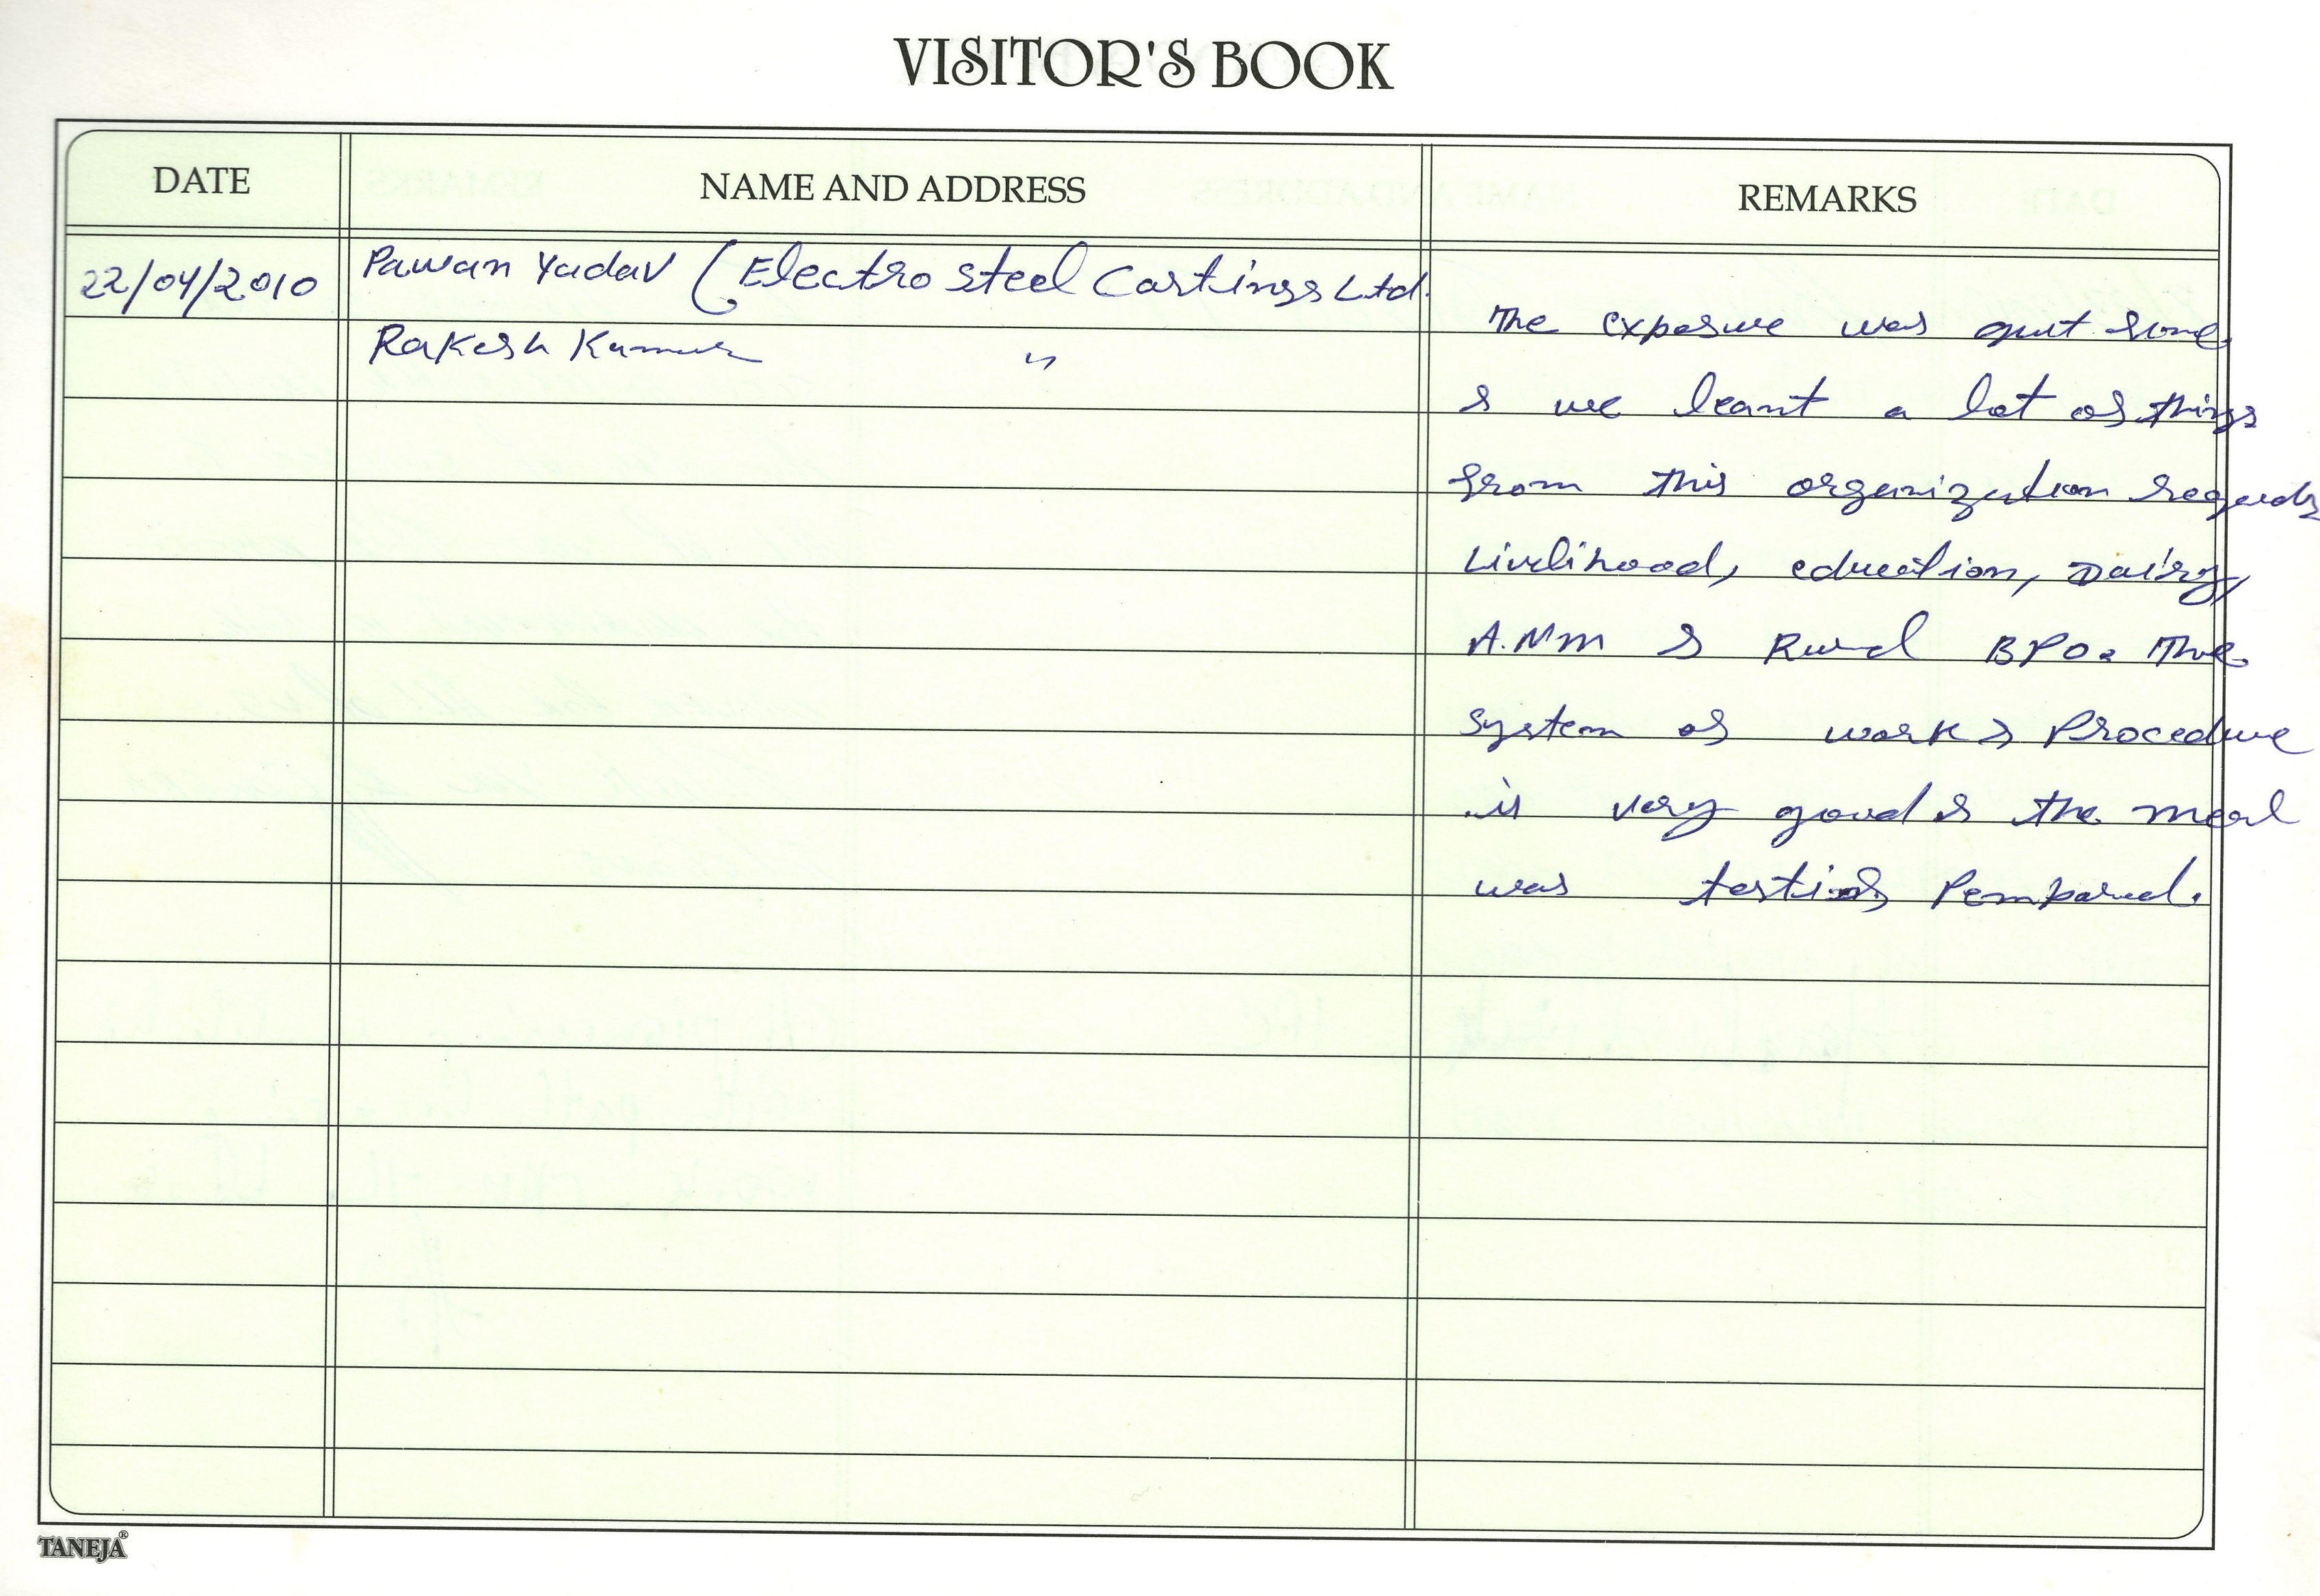 VISITOR'S BOOK
DATE NAME AND ADDRESS REMARKS
22/04/2010 Pawan Yadav (Electro steel Castings Ltd.
Rakesh Kumar "
The exposure was
& we leant a lot of things
from this organization
Livlihood, education, Dairy,
A.NM & Rural BPO. The
System of work & Procedure
is very good & the meal
was
TANEJA®